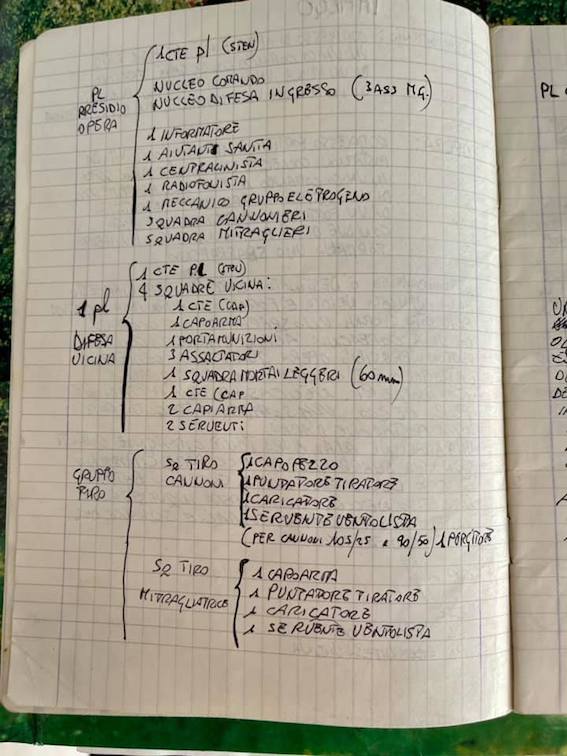 1 CTE pl (STEN)
PL
PRESIDIO
OPERA
NUCLEO COMANDO
NUCLEO DIFESA INGRESSO (3 ASS MG.)
1 INFORMATORE
1 AIUTANTE SANITA
1 CENTRALINISTA
1 RADIOFONISTA
1 MECCANICO GRUPPO ELETROGENO
SQUADRA CANNONIERI
SQUADRA MITRAGLIERI
1 pl
DIFESA
VICINA
1 CTE PL (STEN)
4 SQUADRE VICINA:
1 CTE (CAP)
1 CAPOARMA
1 PORTAMUNIZIONI
3 ASSALTATORI
1 SQUADRA MORTAI LEGGERI (60mm)
1 CTE (CAP
2 CAPIARMA
2 SERVENTI
GRUPPO
TIRO
SQ TIRO
CANNONI
1 CAPOPEZZO
1 PUNTATORE TIRATORE
1 CARICATORE
1 SERVENTE VENTOLISTA
(PER CANNONI 105/25 e 90/50) 1 PORGITORE
SQ TIRO
MITRAGLIATRICE
1 CAPOARMA
1 PUNTATORE TIRATORE
1 CARICATORE
1 SERVENTE VENTOLISTA
PL